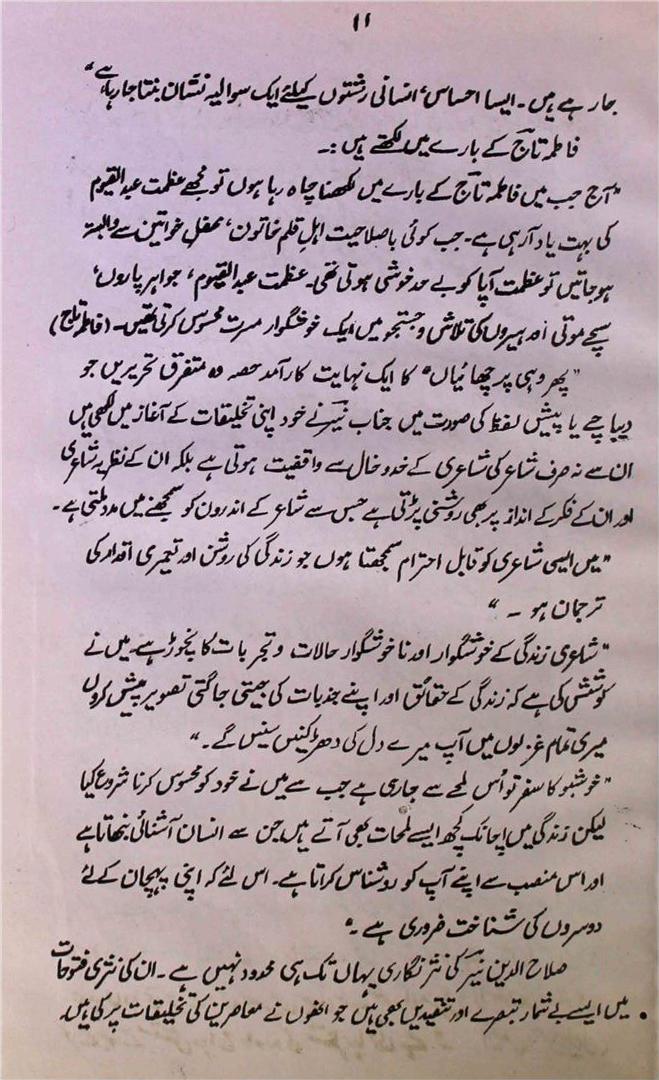 ۱۱
جا رہے ہیں۔ ایسا احساس، انسانی رشتوں کیلئے ایک سوالیہ نشان بنتا جا رہا ہے"
فاطمہ تاج کے بارے میں لکھتے ہیں :۔
"آج جب میں فاطمہ تاج کے بارے میں لکھنا چاہ رہا ہوں تو مجھے عظمت عبدالقیوم
کی بہت یاد آرہی ہے۔ جب کوئی باصلاحیت اہلِ قلم خاتون، محفلِ خواتین سے وابستہ
ہوجاتیں تو عظمت آپا کو بے حد خوشی ہوتی تھی۔ عظمت عبدالقیوم، جواہر پاروں،
سچے موتی اور ہیروں کی تلاش و جستجو میں ایک خوشگوار مسرت محسوس کرتی تھیں۔ (فاطمہ تاج)
"پھر وہی پرچھائیاں" کا ایک نہایت کارآمد حصہ وہ متفرق تحریریں جو
دیباچے یا پیش لفظ کی صورت میں جناب نیّر نے خود اپنی تخلیقات کے آغاز میں لکھی ہیں
ان سے نہ صرف شاعر کی شاعری کے خدوخال سے واقفیت ہوتی ہے بلکہ ان کے نظریہ شاعری
اور ان کے فکر کے انداز پر بھی روشنی پڑتی ہے جس سے شاعر کے اندرون کو سمجھنے میں مدد ملتی ہے۔
"میں ایسی شاعری کو قابل احترام سمجھتا ہوں جو زندگی کی روشن اور تعمیری اقدار کی
ترجمان ہو ۔ "
"شاعری زندگی کے خوشگوار اور ناخوشگوار حالات و تجربات کا نچوڑ ہے۔ میں نے
کوشش کی ہے کہ زندگی کے حقائق اور اپنے جذبات کی جیتی جاگتی تصویر پیش کروں
میری تمام غزلوں میں آپ میرے دل کی دھڑکنیں سنیں گے۔"
"خوشبو کا سفر تو اُس لمحے سے جاری ہے جب سے میں نے خود کو محسوس کرنا شروع کیا
لیکن زندگی میں اچانک کچھ ایسے لمحات بھی آتے ہیں جن سے انسان آشنائی نبھاتا ہے
اور اس منصب سے اپنے آپ کو روشناس کراتا ہے۔ اس لئے کہ اپنی پہچان کے لئے
دوسروں کی شناخت ضروری ہے ۔"
صلاح الدین نیّر کی نثر نگاری یہاں تک ہی محدود نہیں ہے ۔ ان کی نثری فتوحات
میں ایسے بے شمار تبصرے اور تنقیدیں بھی ہیں جو انھوں نے معاصرین کی تخلیقات پر کی ہیں۔